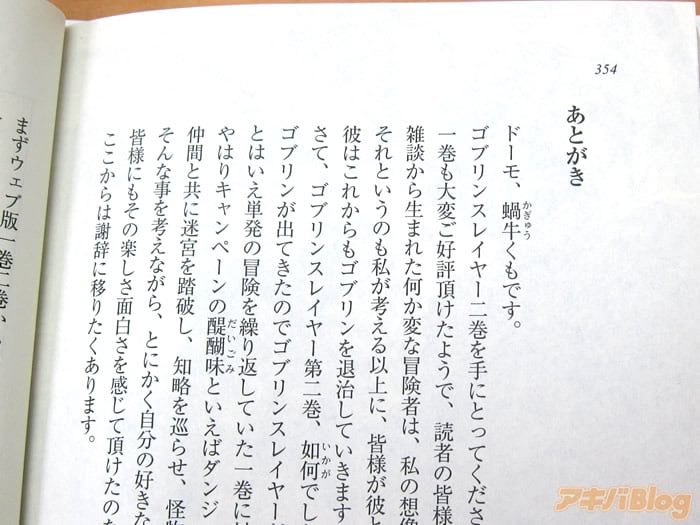 354
あとがき
ドーモ、蝸牛くもです。
かぎゅう
ゴブリンスレイヤー二巻を手にとってくださ
一巻も大変ご好評頂けたようで、読者の皆様
雑談から生まれた何か変な冒険者は、私の想像
それというのも私が考える以上に、皆様が彼と
彼はこれからもゴブリンを退治していきます
さて、ゴブリンスレイヤー第二巻、如何でし
いかが
ゴブリンが出てきたのでゴブリンスレイヤーが
とはいえ単発の冒険を繰り返していた一巻に
やはりキャンペーンの醍醐味といえばダンジ
だいごみ
仲間と共に迷宮を踏破し、知略を巡らせ、怪物
そんな事を考えながら、とにかく自分の好きな
皆様にもその楽しさ面白さを感じて頂けたのな
ここからは謝辞に移りたくあります。
まずウェブ版一巻二巻、
アキバBlog